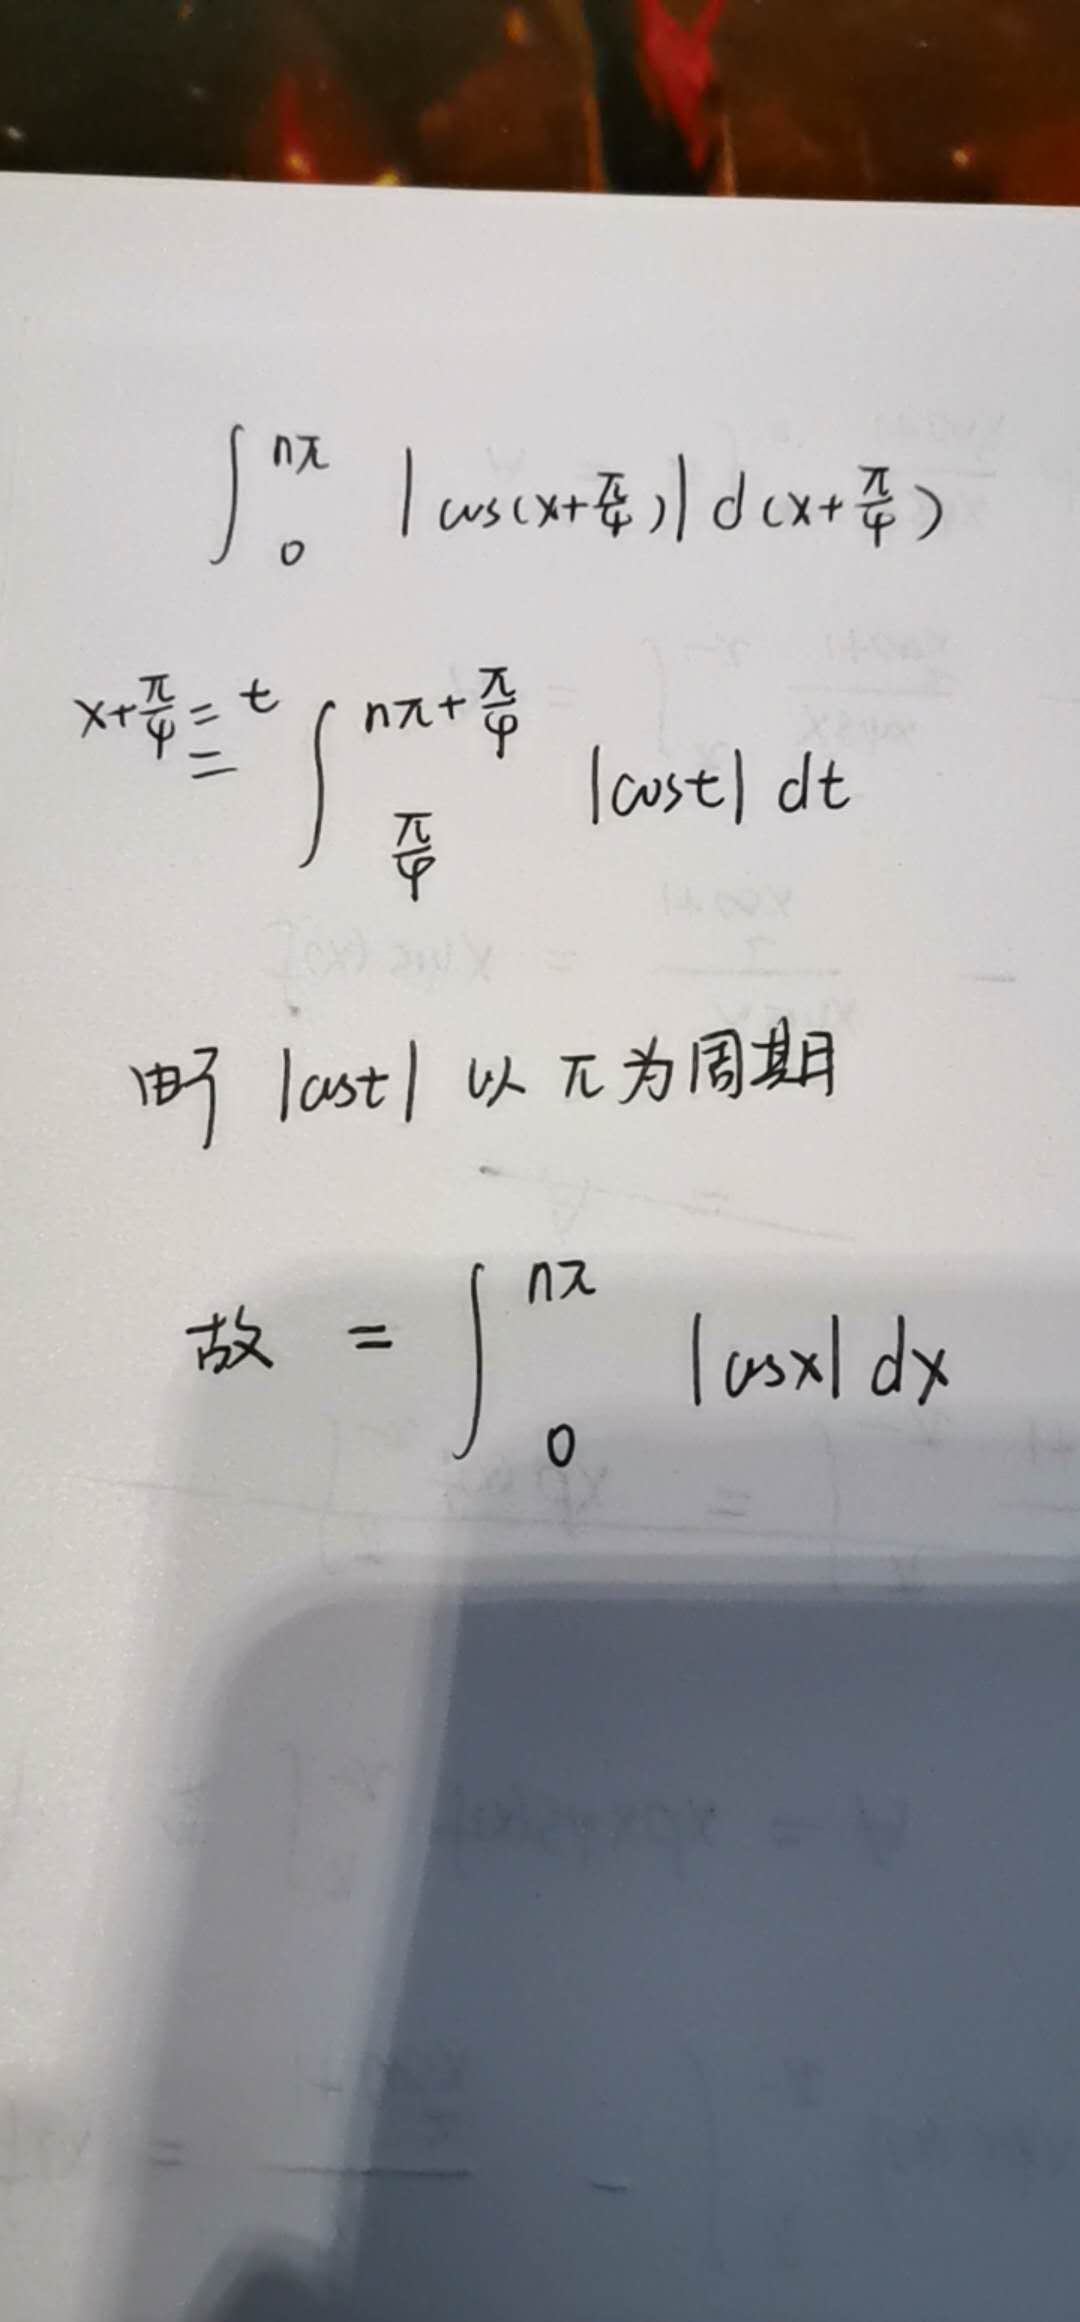 ∫₀^{nπ} |cos(x+π/4)| d(x+π/4)
x+π/4=t = ∫_{π/4}^{nπ+π/4} |cost| dt
由于 |cost| 以 π 为周期
故 = ∫₀^{nπ} |cosx| dx